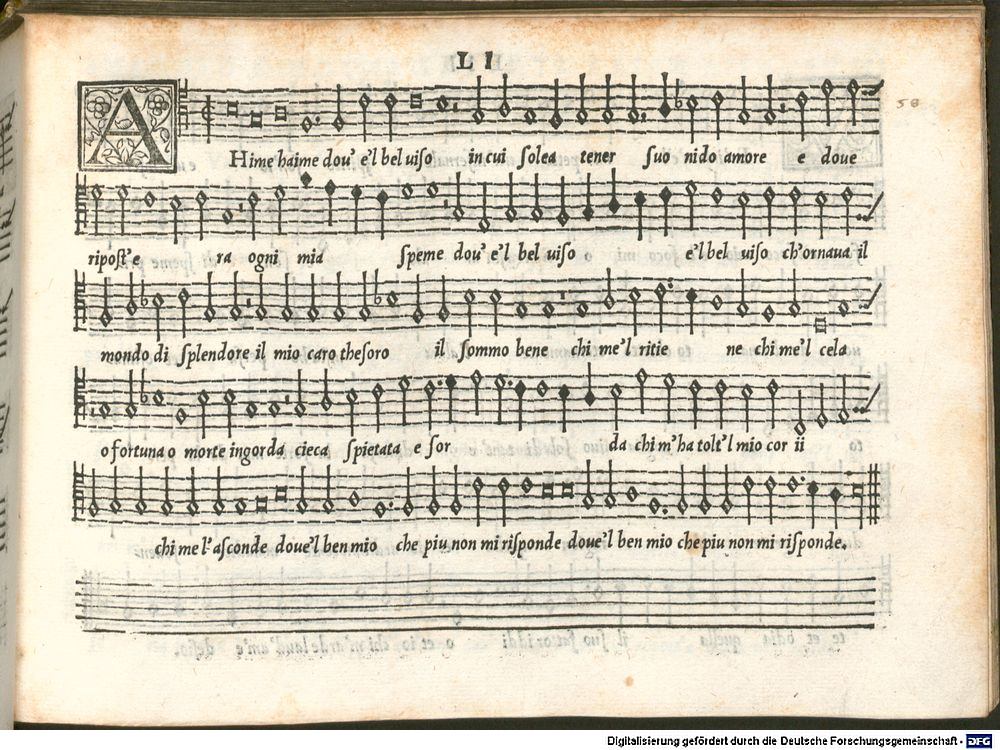 LI
58
AHime haime dou' e'l bel uiso in cui solea tener suo nido amore e doue
ripost'e ra ogni mia speme dou' e'l bel uiso e'l bel uiso ch'ornaua il
mondo di splendore il mio caro thesoro il sommo bene chi me'l ritie ne chi me'l cela
o fortuna o morte ingorda cieca spietata e sor da chi m'ha tolt'l mio cor ii
chi me l'asconde doue'l ben mio che piu non mi risponde doue'l ben mio che piu non mi risponde.
Digitalisierung gefördert durch die Deutsche Forschungsgemeinschaft - DFG